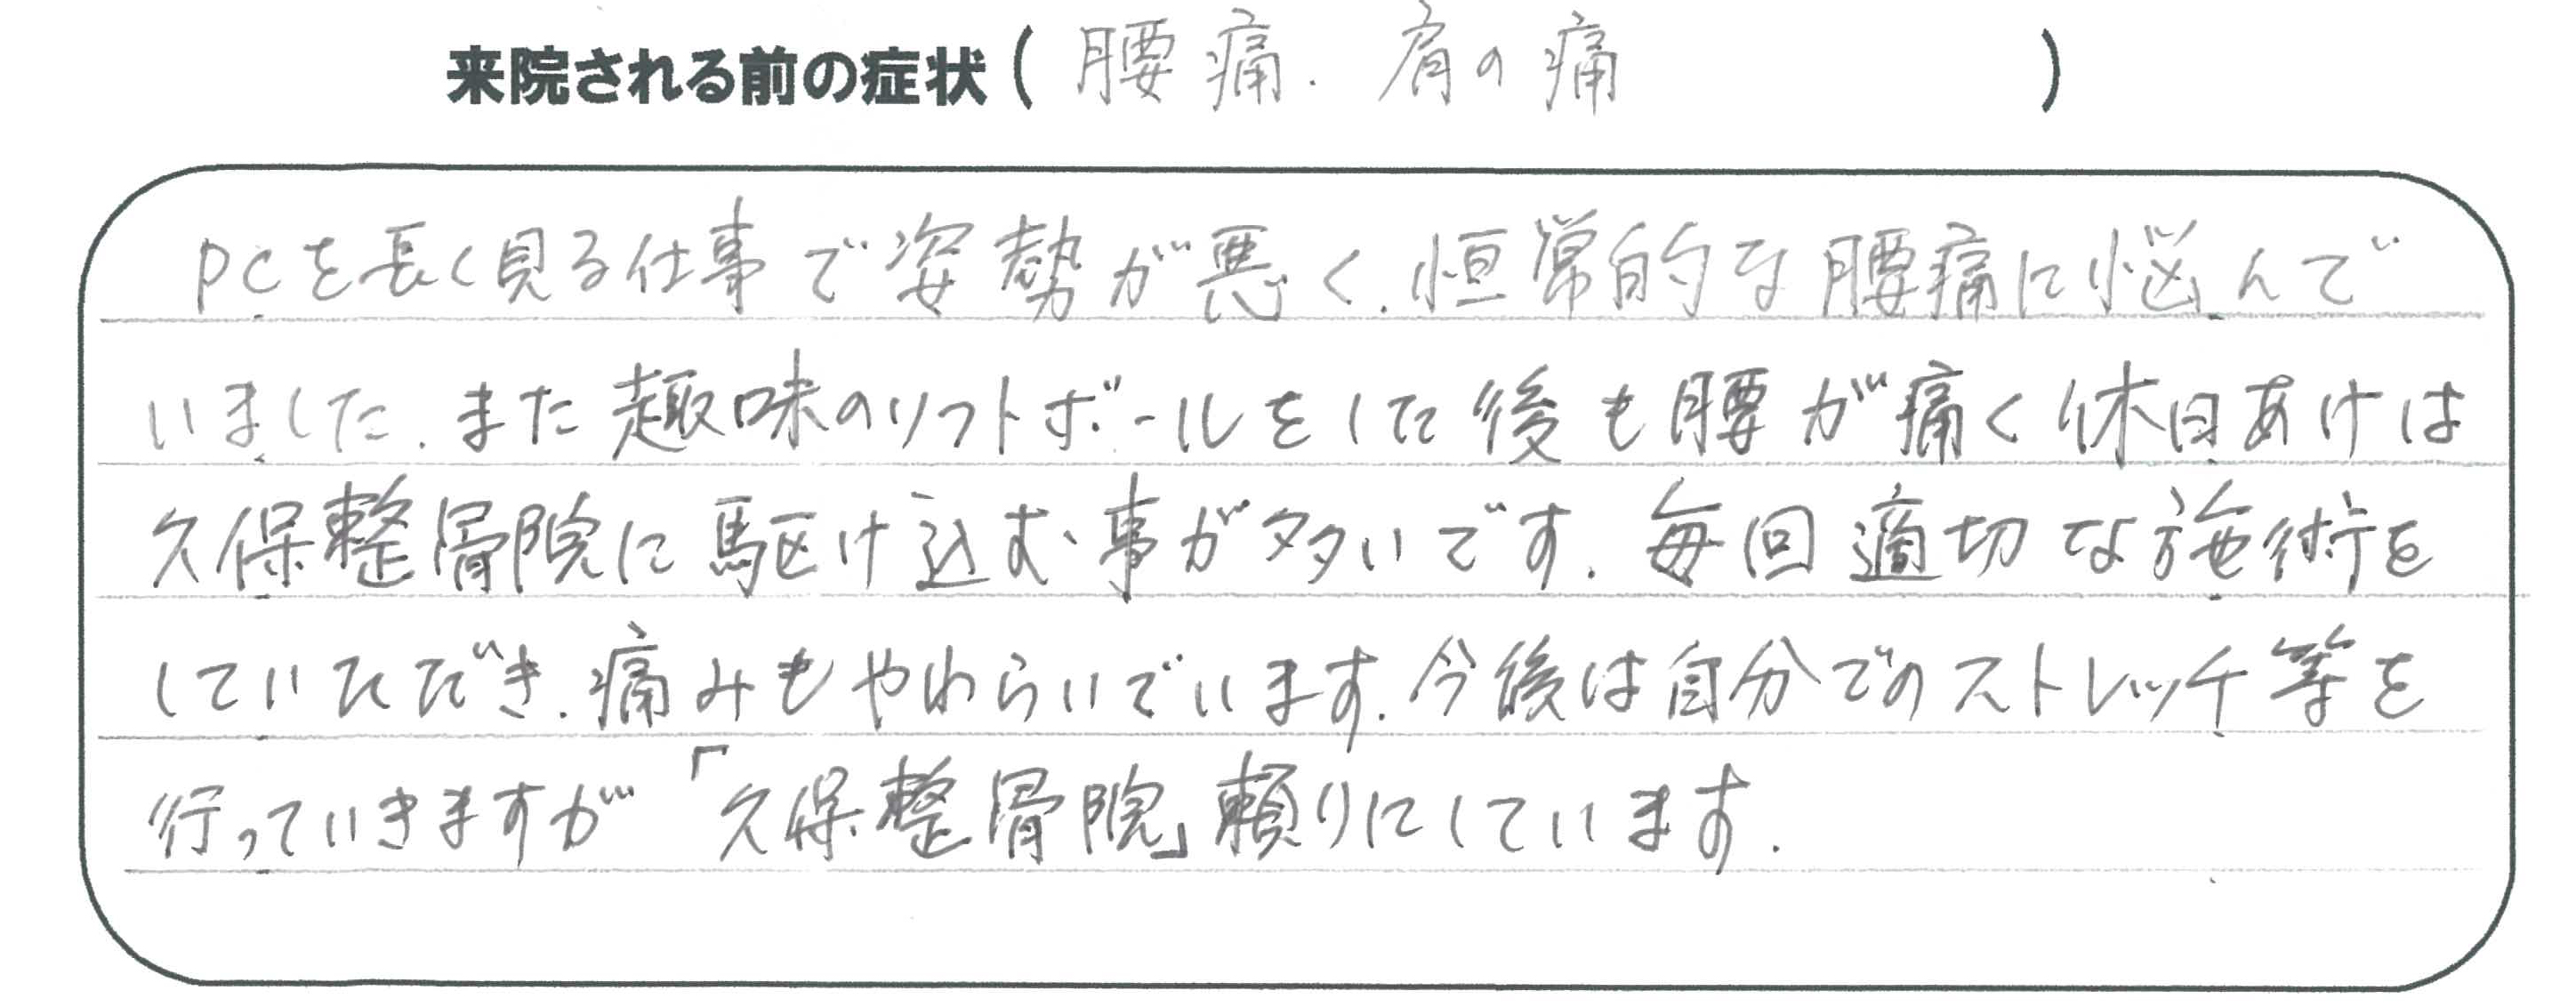 来院される前の症状(腰痛.肩の痛)
PCを長く見る仕事で姿勢が悪く.恒常的な腰痛に悩んで
いました.また趣味のソフトボールをした後も腰が痛く休日あけは
久保整骨院に駆け込む事が多いです.毎回適切な施術を
していただき.痛みもやわらいでいます.今後は自分でのストレッチ等を
行っていきますが「久保整骨院」頼りにしています.